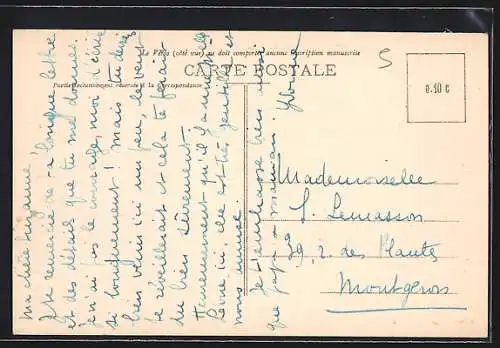 Ce Verso (côté vue) ne doit comporter aucune inscription manuscrite
CARTE POSTALE
Partie exclusivement réservée à la correspondance
0.10 c
5
Ma chère Suzanne
Je te remercie de ta longue lettre
et des détails que tu me donnes.
je n'ai pas le courage, moi, d'écrire
si longuement ! Mais tu devrais
bien venir ici un peu, le vent
te réveillerait et cela te ferait
du bien sûrement.
Heureusement qu'il y a
ici, elle est très gentille et
nous amuse.
Je t'embrasse bien ainsi
que papa et maman.
Yvonne
Mademoiselle
S. Lemasson
29, r. des Plantes
Montgeron